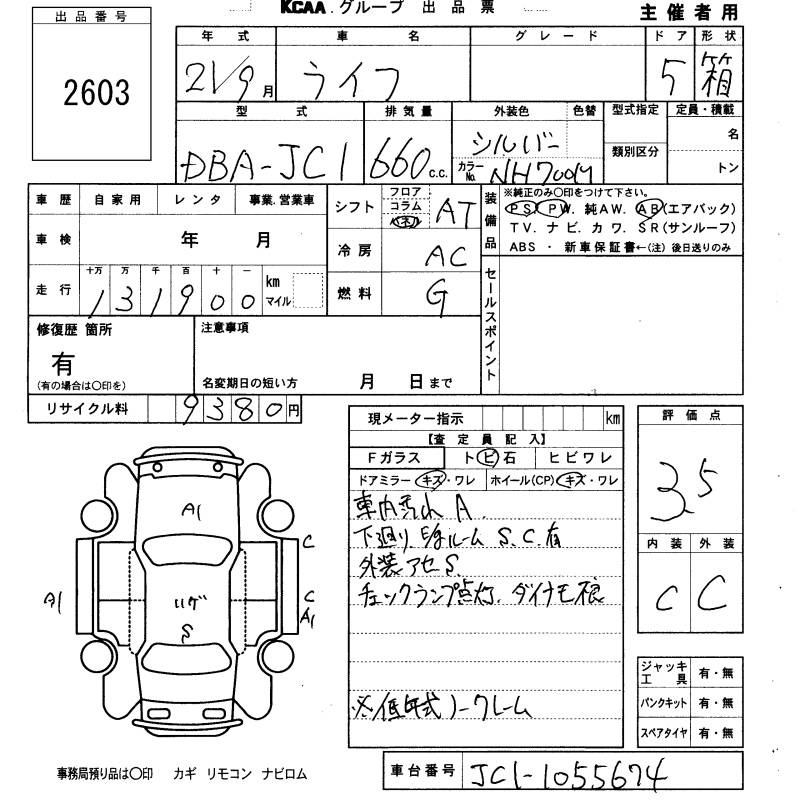 KCAA.グループ 出品票
主催者用
出品番号
2603
年式 車名 グレード ドア 形状
21/9月 ライフ 5 箱
型式 排気量 外装色 色替 型式指定 定員・積載
DBA-JC1 660c.c. シルバー 名
カラーNo. NH700M 類別区分 トン
車歴 自家用 レンタ 事業.営業車
車検 年 月
走行 十万 万 千 百 十 一 km マイル
131900
シフト フロア コラム パネル AT
冷房 AC
燃料 G
装備品
※純正のみ〇印をつけて下さい。
PS. PW. 純AW. AB(エアバック)
TV. ナビ. カワ. SR(サンルーフ)
ABS ・ 新車保証書←(注) 後日送りのみ
セールスポイント
修復歴 箇所
有
(有の場合は〇印を)
注意事項
名変期日の短い方 月 日まで
リサイクル料 9380円
現メーター指示 km
【査定員記入】
Fガラス トビ石 ヒビワレ
ドアミラー キズ・ワレ ホイール(CP) キズ・ワレ
車内汚れ A.
下廻り. E/gルーム S.C.有
外装アセS.
チェックランプ点灯. ダイナモ根
※低年式ノークレーム
評価点
3.5
内装 外装
C C
ジャッキ工具 有・無
パンクキット 有・無
スペアタイヤ 有・無
A1
C
A1
C
A1
S
事務局預り品は〇印 カギ リモコン ナビロム
車台番号 JC1-1055674